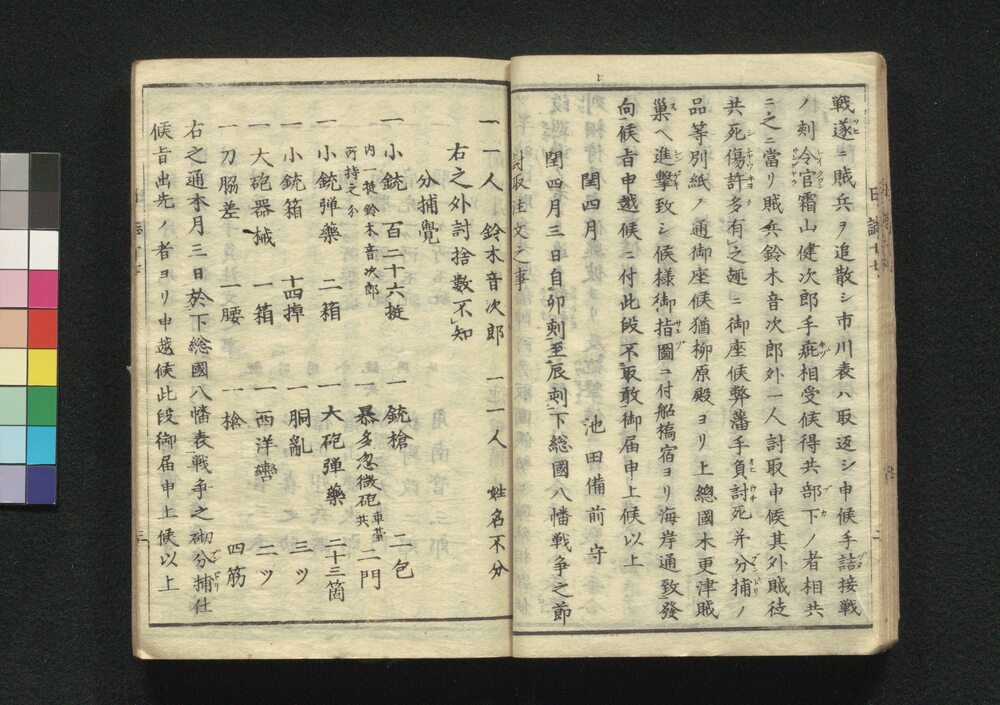 戦遂ニ賊兵ヲ追散シ市川表ハ取返シ申候手詰接戦
ノ刻令官霜山健次郎手疵相受候得共部下ノ者相共
ニ之ニ當リ賊兵鈴木音次郎外一人討取申候其外賊徒
共死傷許多有之趣ニ御座候弊藩手負討死并分捕ノ
品等別紙ノ通御座候猶柳原殿ヨリ上總國木更津賊
巢ヘ進撃致シ候様御指圖ニ付船橋宿ヨリ海岸通致發
向候旨申越候ニ付此段不取敢御届申上候以上
閏四月 池田備前守
閏四月三日自卯刻至辰刻下総國八幡戦争之節
討取注文之事
一一人 鈴木音次郎 一一人 姓名不分
右之外討捨數不知
分捕覺
一小銃 百二十六挺 一銃槍 二包
内一挺鈴木音次郎所持之分 一暴多忽微砲車臺共 二門
一小銃弾藥 二箱 一大砲弾藥 二十三箇
一小銃箱 十四掉 一胴亂 三ツ
一大砲器械 一箱 一西洋轡 二ツ
一刀脇差 一腰 一槍 四筋
右之通本月三日於下総國八幡表戦争之砌分捕仕
候旨出先ノ者ヨリ申越候此段御届申上候以上